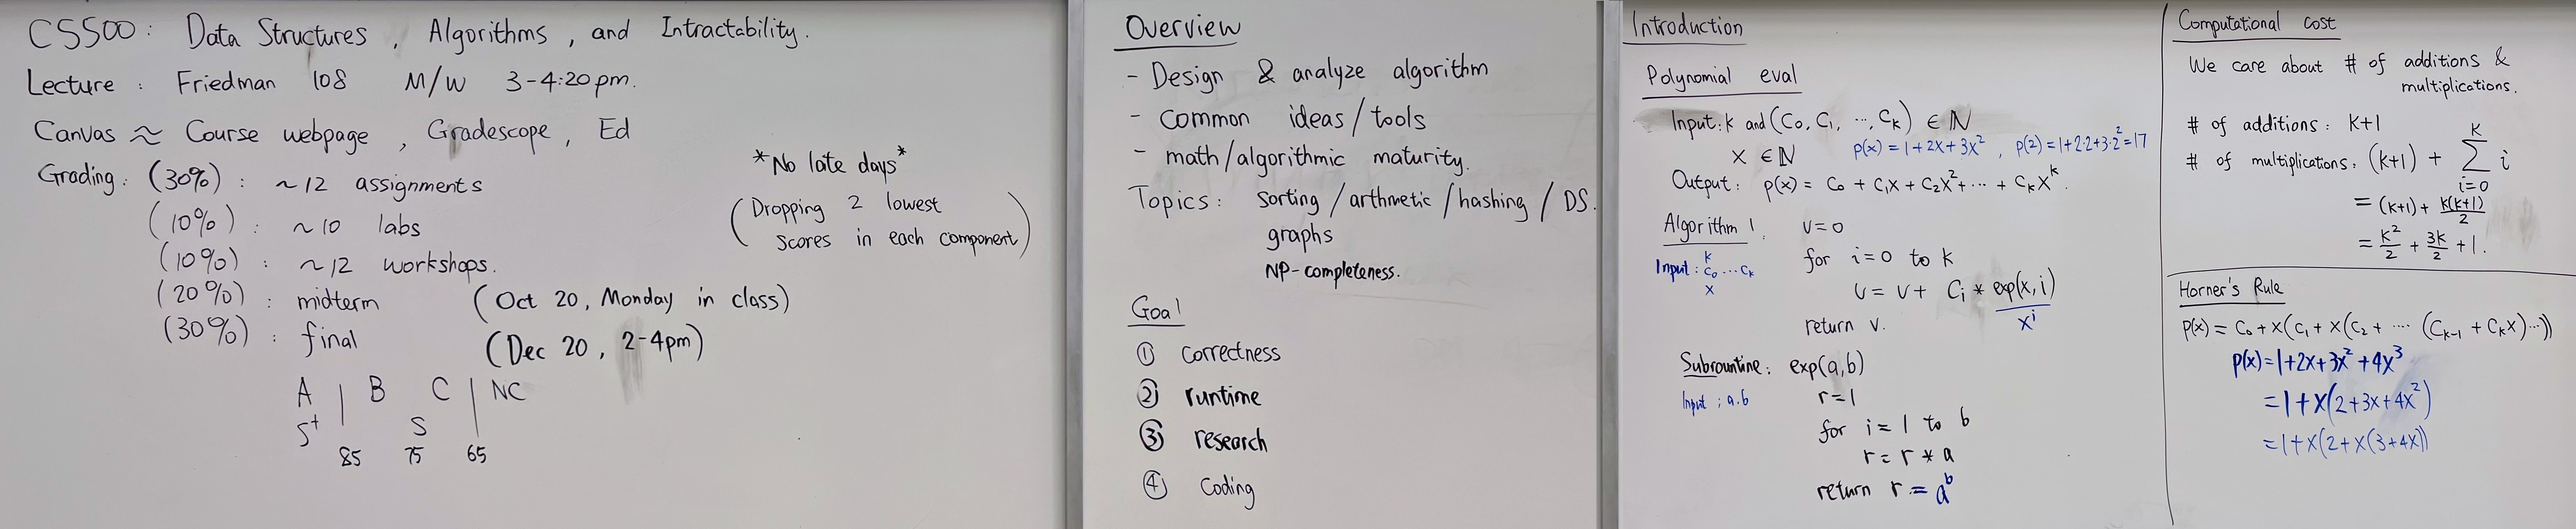 CS500: Data Structures, Algorithms, and Intractability.
Lecture: Friedman 108 M/W 3-4:20pm.
Canvas ≈ Course webpage, Gradescope, Ed
Grading: (30%): ~12 assignments
(10%): ~10 labs
(10%): ~12 workshops.
(20%): midterm (Oct 20, Monday in class)
(30%): final (Dec 20, 2-4pm)
*No late days*
(Dropping 2 lowest
scores in each component)
A | B C | NC
S+ S
85 75 65
Overview
- Design & analyze algorithm
- common ideas/tools
- math/algorithmic maturity.
Topics: Sorting/arthmetic/hashing/DS.
graphs
NP-completeness.
Goal
① correctness
② runtime
③ research
④ Coding
Introduction
Polynomial eval
Input: k and (C₀, C₁, ..., Cₖ) ∈ ℕ
x ∈ ℕ p(x) = 1+2x+3x², p(2) = 1+2·2+3·2² = 17
Output: p(x) = C₀ + C₁x + C₂x² + ... + Cₖxᵏ.
Algorithm 1. v=0
Input: k
C₀ ... Cₖ
x
for i=0 to k
v = v + Cᵢ * exp(x,i)
xⁱ
return v.
Subrountine: exp(a,b)
Input: a.b
r=1
for i=1 to b
r = r * a
return r = aᵇ
Computational cost
We care about # of additions &
multiplications.
# of additions: k+1
# of multiplications: (k+1) + ∑_{i=0}^{k} i
= (k+1) + k(k+1)/2
= k²/2 + 3k/2 + 1.
Horner's Rule
p(x) = C₀ + x(C₁ + x(C₂ + ... (Cₖ₋₁ + Cₖx)...))
p(x) = 1+2x+3x²+4x³
= 1+x(2+3x+4x²)
= 1+x(2+x(3+4x))